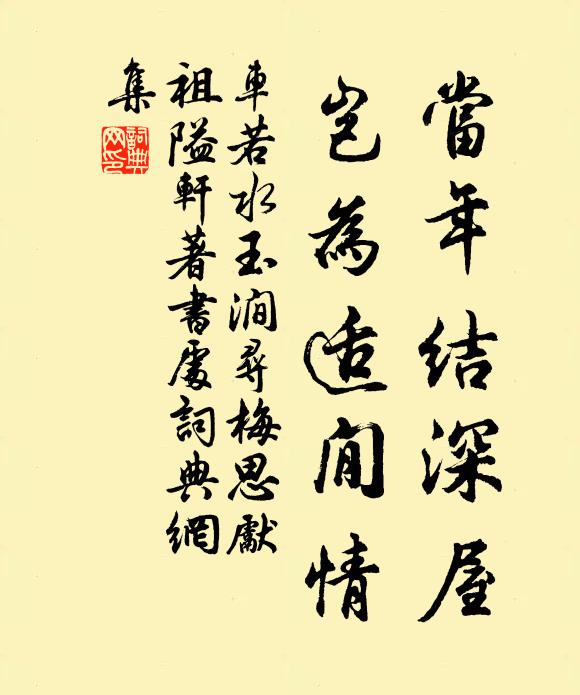 當年結深屋
豈為适閒情
車若水玉澗尋梅思獻
祖隘軒著書處詞典網
集
詞典網印